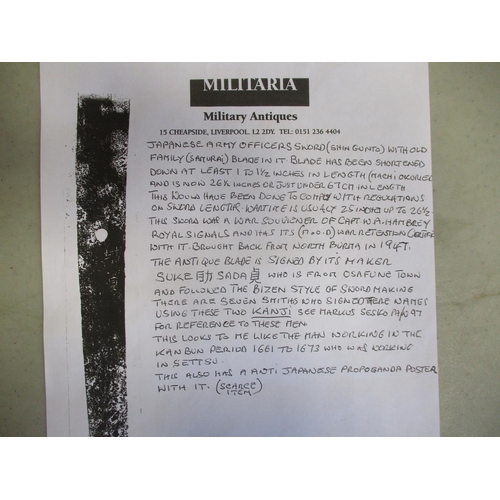 MILITARIA
Military Antiques
15 CHEAPSIDE, LIVERPOOL. L2 2DY. TEL: 0151 236 4404
JAPANESE ARMY OFFICERS SWORD (SHIN GUNTO) WITH OLD
FAMILY (SAMURAI) BLADE IN IT BLADE HAS BEEN SHORTENED
DOWN AT LEAST 1 TO 1½ INCHES IN LENGTH (MACHI OKURI)
AND IS NOW 26⅜ INCHES OR JUST UNDER 67CM IN LENGTH
THIS WOULD HAVE BEEN DONE TO COMPLY WITH REGULATIONS
ON SWORD LENGTH, WARTIME IS USUALLY 25 INCHES UP TO 26½
THIS SWORD WAS A WAR SOUVIONER OF CAPT W.A. HAMBREY
ROYAL SIGNALS AND HAS ITS (M.O.D) WAR RETENTION
WITH IT. BROUGHT BACK FROM NORTH BURMA IN 1947.
THE ANTIQUE BLADE IS SIGNED BY ITS MAKER
SUKE 助 SADA 貞 WHO IS FROM OSAFUNE TOWN
AND FOLLOWED THE BIZEN STYLE OF SWORD MAKING
THERE ARE SEVEN SMITHS WHO SIGNED THERE NAMES
USING THESE TWO KANJI SEE MARKUS SESKO
FOR REFERENCE TO THESE MEN.
THIS LOOKS TO ME LIKE THE MAN WORKING IN THE
KANBUN PERIOD 1661 TO 1673 WHO WAS WORKING
IN SETTSU.
THIS ALSO HAS A ANTI JAPANESE PROPOGANDA POSTER
WITH IT. (SCARCE
ITEM)